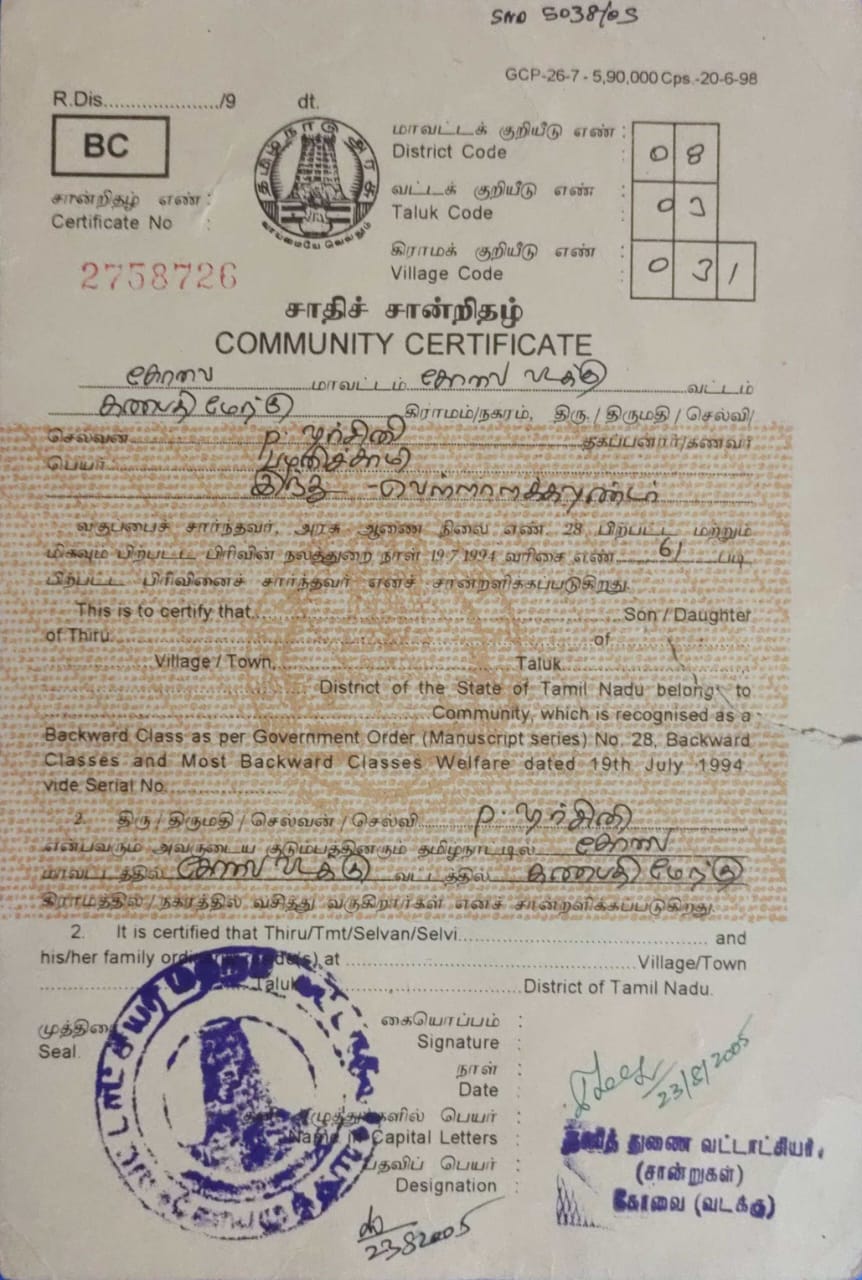 SNO 5038/05
GCP-26-7 - 5,90,000 Cps.-20-6-98
R.Dis...................../9 dt.
BC
தமிழ்நாடு அரசு
வாய்மையே வெல்லும்
மாவட்டக் குறியீடு எண் :
District Code : 0 8
வட்டக் குறியீடு எண் :
Taluk Code : 0 3
கிராமக் குறியீடு எண் :
Village Code : 0 3 1
சான்றிதழ் எண் :
Certificate No :
2758726
சாதிச் சான்றிதழ்
COMMUNITY CERTIFICATE
கோவை மாவட்டம் கோவை வடக்கு வட்டம்
கணபதி மேற்கு கிராமம்/நகரம், திரு. / திருமதி / செல்வி/
செல்வன் P. தகப்பனார்/கணவர்
பெயர் பழனிச்சாமி
இந்து - வெள்ளாளக்கவுண்டர்
வகுப்பைச் சார்ந்தவர், அரசு ஆணை நிலை எண். 28 பிற்பட்ட மற்றும்
மிகவும் பிற்பட்ட பிரிவின் நலத்துறை நாள் 19.7.1994 வரிசை எண் 61 படி
பிற்பட்ட பிரிவினைச் சார்ந்தவர் எனச் சான்றளிக்கப்படுகிறது.
This is to certify that Son / Daughter
of Thiru of
Village / Town, Taluk
District of the State of Tamil Nadu belongs to
Community, which is recognised as a
Backward Class as per Government Order (Manuscript series) No. 28, Backward
Classes and Most Backward Classes Welfare dated 19th July 1994
vide Serial No.
2. திரு / திருமதி / செல்வன் / செல்வி P.
என்பவரும் அவருடைய குடும்பத்தினரும் தமிழ்நாட்டில் கோவை
மாவட்டத்தில் கோவை வடக்கு வட்டத்தில் கணபதி மேற்கு
கிராமத்தில் / நகரத்தில் வசித்து வருகிறார்கள் எனச் சான்றளிக்கப்படுகிறது.
2. It is certified that Thiru/Tmt/Selvan/Selvi and
his/her family at Village/Town
Taluk District of Tamil Nadu.
முத்திரை
Seal.
கையொப்பம் :
Signature :
நாள் :
Date :
23/8/2005
எழுத்துகளில் பெயர் :
Name in Capital Letters :
பதவிப் பெயர் :
Designation :
துணை வட்டாட்சியர்,
(சான்றுகள்)
கோவை (வடக்கு)
23 8 2005